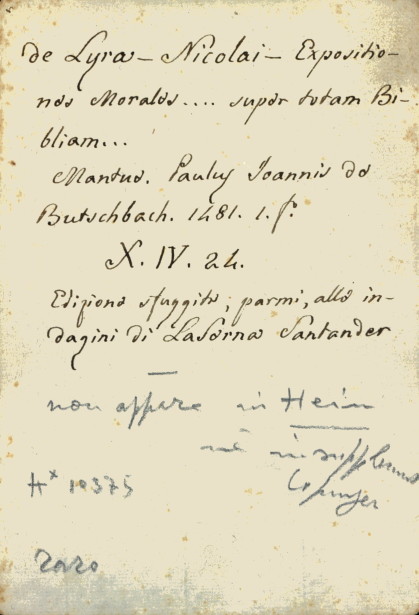 de Lyra — Nicolai — Expositio-
nes Morales .... super totam Bi-
bliam...
Mantue. Paulus Joannis de
Butschbach. 1481. 1. f.
X. IV. 24.
Edizione sfuggita, parmi, alle in-
dagini di LaSerna Santander
non appare in Hein
nè in supplement
Copinger
H* 10375
raro